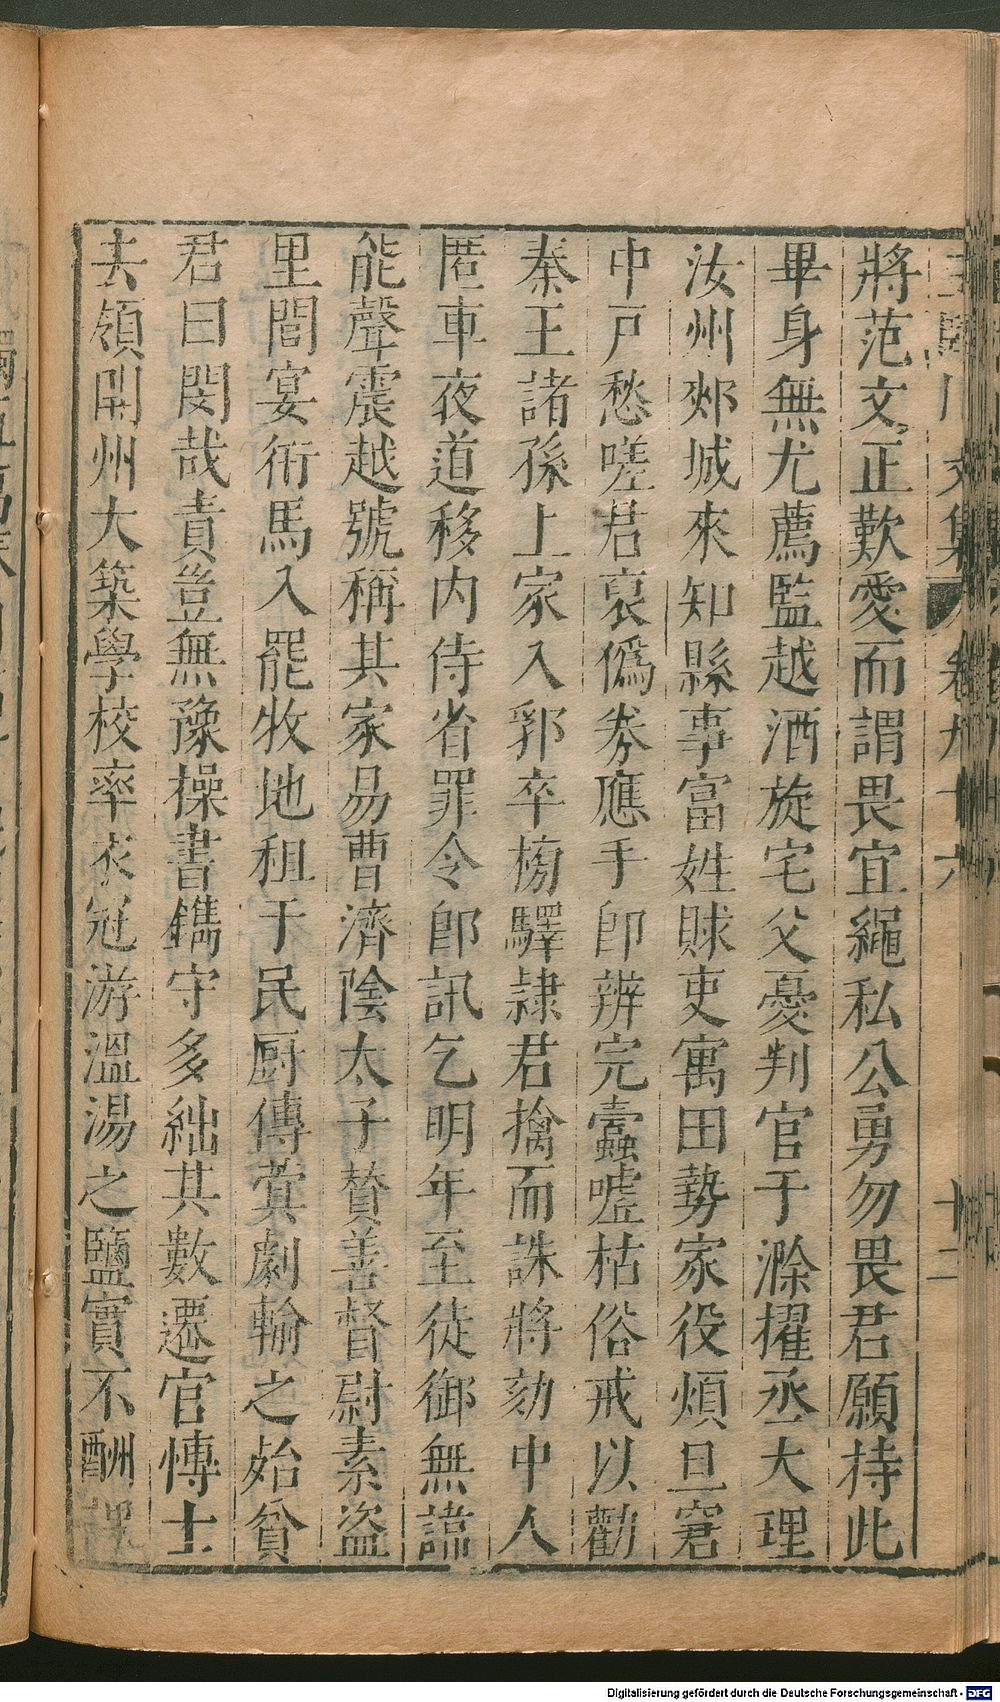 王臨川文集 卷九十六 十二
將范文正歎愛而謂畏宜繩私公勇勿畏君願持此
畢身無尤薦監越酒旋宅父憂判官于滁擢丞大理
汝州郟城來知縣事富姓賕吏寓田勢家役煩且窘
中戸愁嗟君裒僞券應手即辨完蠹噓枯俗戒以勸
秦王諸孫上冢入郛卒搒驛隷君擒而誅將劾中人
匿車夜道移內侍省罪令郎訊乞明年至徒御無譁
能聲震越號稱其家易曹濟陰太子賛善督尉素盜
里閭宴衎馬入罷牧地租于民厨傳蓂劇輸之始貧
君曰閔哉責豈無豫操書鐫守多絀其數遷官博士
去領開州大築學校率衣冠游溫湯之鹽實不酬課
Digitalisierung gefördert durch die Deutsche Forschungsgemeinschaft - DFG